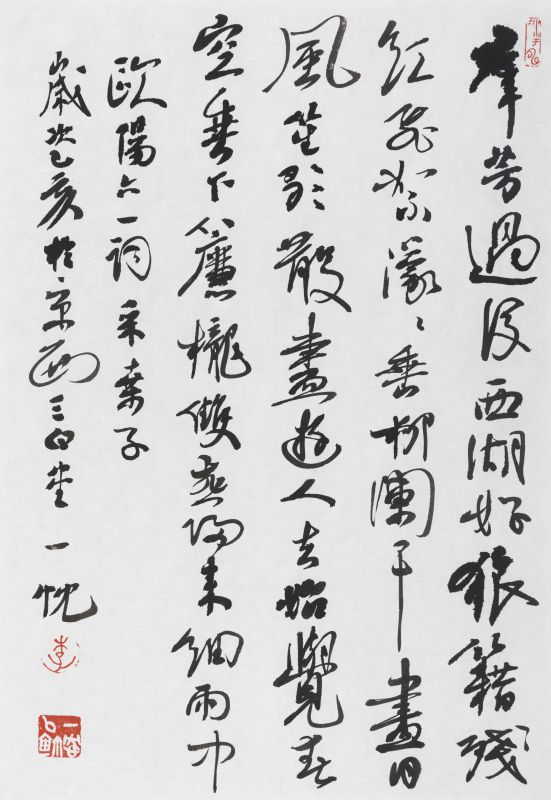 羣芳過後西湖好狼籍殘
紅飛絮濛〻垂柳闌干盡日
風笙歌散盡遊人去始覺春
空垂下簾櫳雙燕歸來細雨中
歐陽六一詞采桑子
歲次己亥於京西三白堂一忱
李